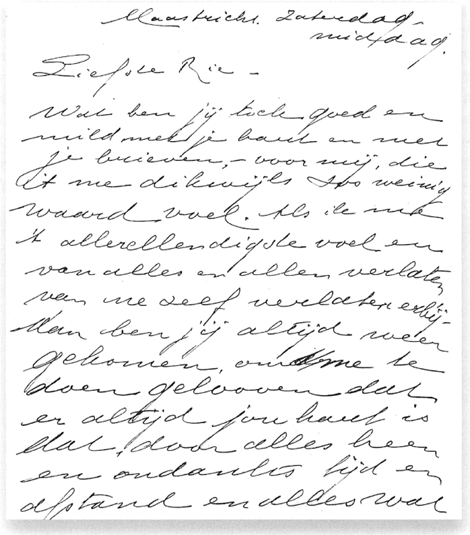 Maastricht. Zaterdag-
middag.
Liefste Rie –
Wat ben jij toch goed en
mild met je hart en met
je brieven, – voor mij, die
ik me dikwijls zoo weinig
waard voel. Als ik me
't allerellendigste voel en
van alles en allen verlaten
van me zelf verlaten erbij –
dan ben jij altijd weer
gekomen, om me te
doen gelooven dat
er altijd jou hart is
dat, door alles heen
en ondanks tijd en
afstand en alles wat